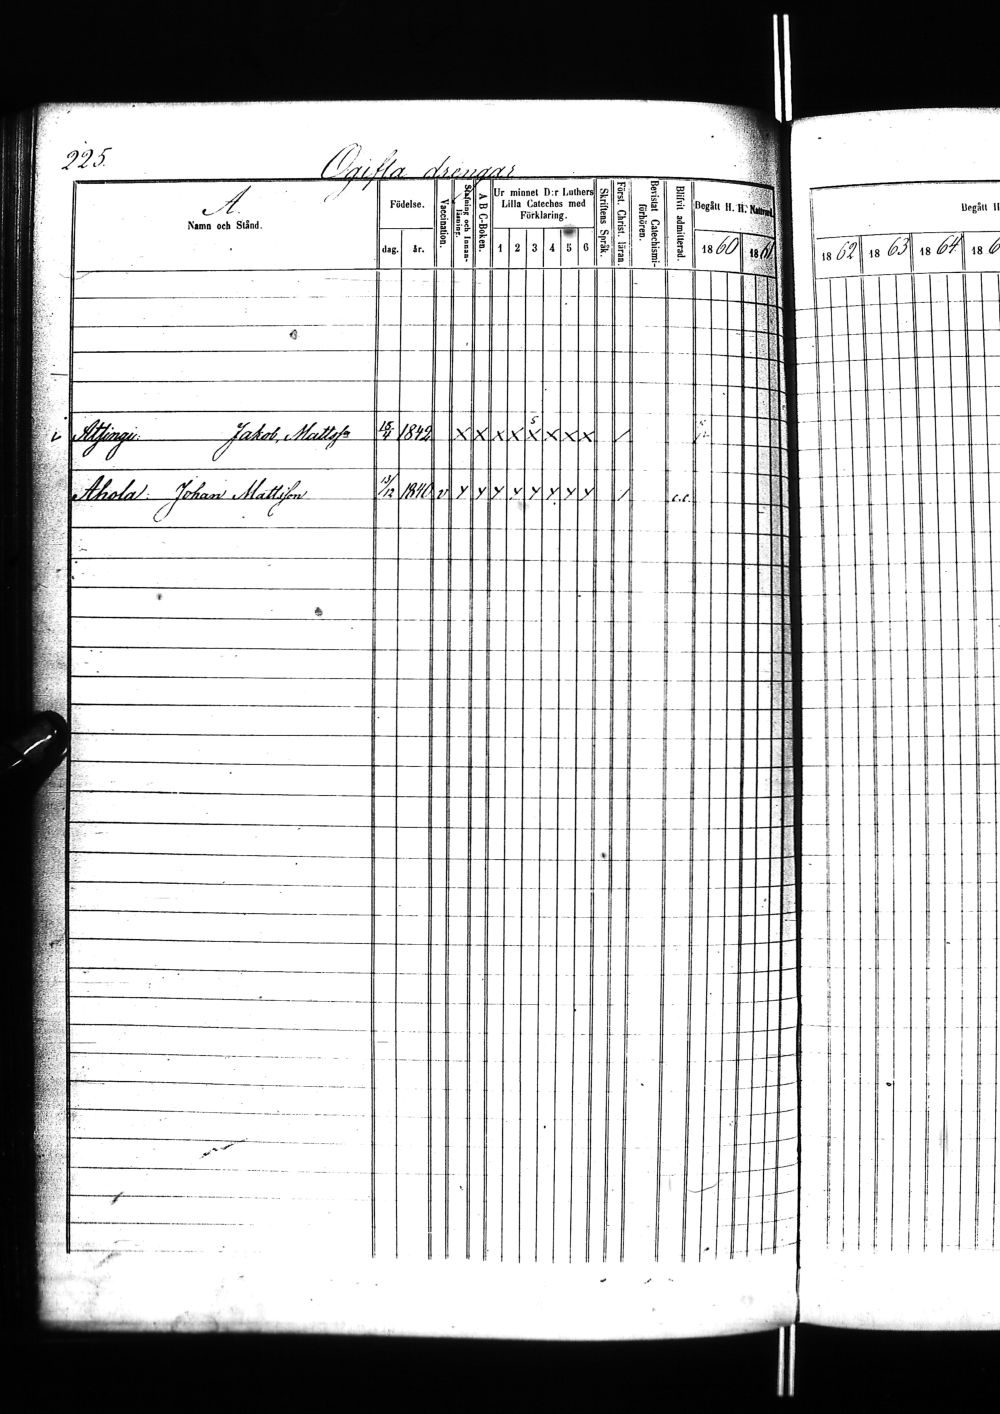 225.
Ogifta drengar
A.
Namn och Stånd.
Födelse.
dag. år.
Vaccination.
Stafning och Innan-läsning.
A B C-Boken.
Ur minnet D:r Luthers
Lilla Cateches med
Förklaring.
1 2 3 4 5 6
Skriftens Språk.
Först. Christ. läran.
Bevistat Catechismi-förhören.
Blifvit admitterad.
Begått H. H. Nattvard.
1860 1861
Begått H
1862 1863 1864 186
Jakob, Mattss:n 15/4 1842 X X X X 5 X X X X /
Ahola. Johan Mattsson 13/12 1840 v Y Y Y Y Y Y Y Y / c.c.